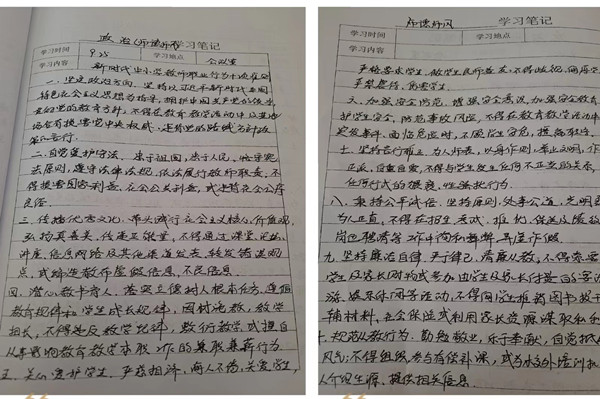 政治(师德师风) 学习笔记
学习时间 9.25 学习地点 会议室
学习内容 新时代中小学教师职业行为十项准则
一、坚定政治方向。坚持以习近平新时代中国
特色社会主义思想为指导，拥护中国共产党的领导，
党的教育方针；不得在教育教学活动中及其他
场合有损害党中央权威、违背党的路线方针政
策的言行。
二、自觉爱国守法。忠于祖国，忠于人民，恪守宪
法原则，遵守法律法规，依法履行教师职责；不
得损害国家利益、社会公共利益，或违背社会公序
良俗。
三、传播优秀文化。带头践行社会主义核心价值观，
弘扬真善美，传递正能量；不得通过课堂、论坛、
讲座、信息网络及其他渠道发表、转发错误观
点，或编造散布虚假信息、不良信息。
四、潜心教书育人。落实立德树人根本任务，遵循
教育规律和学生成长规律，因材施教，教学
相长；不得违反教学纪律，敷衍教学，或擅自
从事影响教育教学本职工作的兼职兼薪行为
五、关心爱护学生。严慈相济，诲人不倦，关爱学生，
师德师风 学习笔记
学习时间 学习地点
学习内容
严格要求学生，做学生良师益友；不得歧视、侮辱学
六、加强安全防范。增强安全意识，加强安全教育
护学生安全，防范事故风险；不得在教育教学活动中
突发事件、面临危险时，不顾学生安危，擅离职守
七、坚持言行雅正。为人师表，以身作则，举止文明，作
正派，自重自爱；不得与学生发生任何不正当关系，
任何形式的猥亵、性骚扰行为。
八、秉持公平诚信。坚持原则，处事公道，光明磊
为人正直；不得在招生、考试、推优、保送及绩效
岗位聘用、等工作中徇私舞弊、弄虚作假
九、坚守廉洁自律。严于律己，清廉从教；不得索要
学生及家长财物或参加由学生及家长付费的宴请
游、娱乐休闲等活动，不得向学生推销图书报刊
辅材料、社会保险或利用家长资源谋取私利
十、规范从教行为。勤勉敬业，乐于奉献，自觉抵
风气；不得组织、参与有偿补课，或为校外培训机
人介绍生源、提供相关信息。